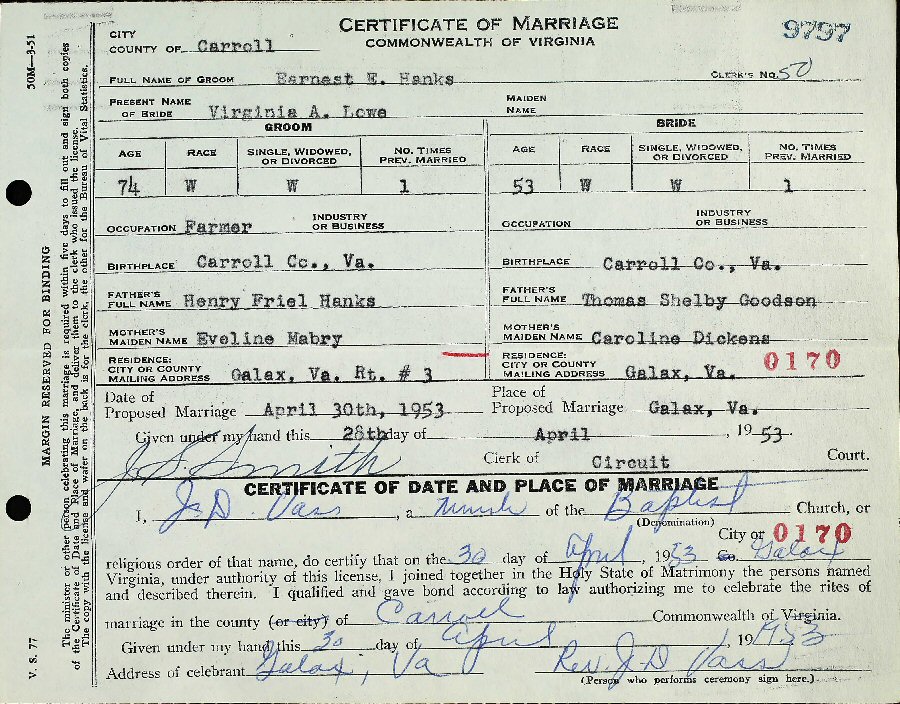 CERTIFICATE OF MARRIAGE
COMMONWEALTH OF VIRGINIA
9797
CITY
COUNTY OF Carroll
FULL NAME OF GROOM Earnest E. Hanks CLERK'S No. 50
PRESENT NAME OF BRIDE Virginia A. Lowe MAIDEN NAME
GROOM BRIDE
AGE RACE SINGLE, WIDOWED, OR DIVORCED NO. TIMES PREV. MARRIED AGE RACE SINGLE, WIDOWED, OR DIVORCED NO. TIMES PREV. MARRIED
74 W W 1 53 W W 1
OCCUPATION Farmer INDUSTRY OR BUSINESS OCCUPATION INDUSTRY OR BUSINESS
BIRTHPLACE Carroll Co., Va. BIRTHPLACE Carroll Co., Va.
FATHER'S FULL NAME Henry Friel Hanks FATHER'S FULL NAME Thomas Shelby Goodson
MOTHER'S MAIDEN NAME Eveline Mabry MOTHER'S MAIDEN NAME Caroline Dickens
RESIDENCE: CITY OR COUNTY MAILING ADDRESS Galax, Va. Rt. # 3 RESIDENCE: CITY OR COUNTY MAILING ADDRESS Galax, Va. 0170
Date of Proposed Marriage April 30th, 1953 Place of Proposed Marriage Galax, Va.
Given under my hand this 28th day of April, 1953.
J. S. Smith Clerk of Circuit Court.
CERTIFICATE OF DATE AND PLACE OF MARRIAGE
I, J. D. Vass, a of the Baptist Church, or
(Denomination)
City or 0170
religious order of that name, do certify that on the 30 day of April, 1953 Co. Galax
Virginia, under authority of this license, I joined together in the Holy State of Matrimony the persons named
and described therein. I qualified and gave bond according to law authorizing me to celebrate the rites of
marriage in the county (or city) of Carroll Commonwealth of Virginia.
Given under my hand this 30 day of April, 19 1953
Address of celebrant Galax, Va Rev. J. D. Vass
(Person who performs ceremony sign here.)
50M—3-51
V. S. 77
MARGIN RESERVED FOR BINDING
The minister or other person celebrating this marriage is required within five days to fill out and sign both copies
of the Certificate of Date and Place of Marriage, and deliver them to the clerk who issued the license.
The copy with the license and wafer on the back is for the clerk, the other for the Bureau of Vital Statistics.